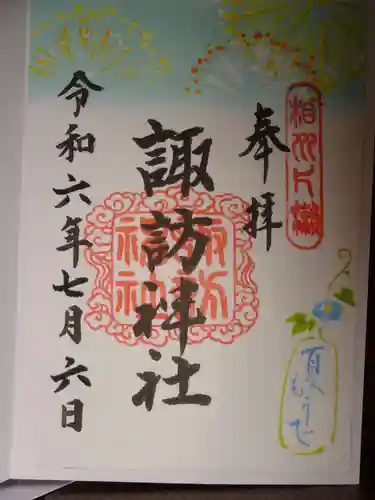 相州片瀬
奉拝
夏もうで
諏訪神社
諏訪
神社
令和六年七月六日